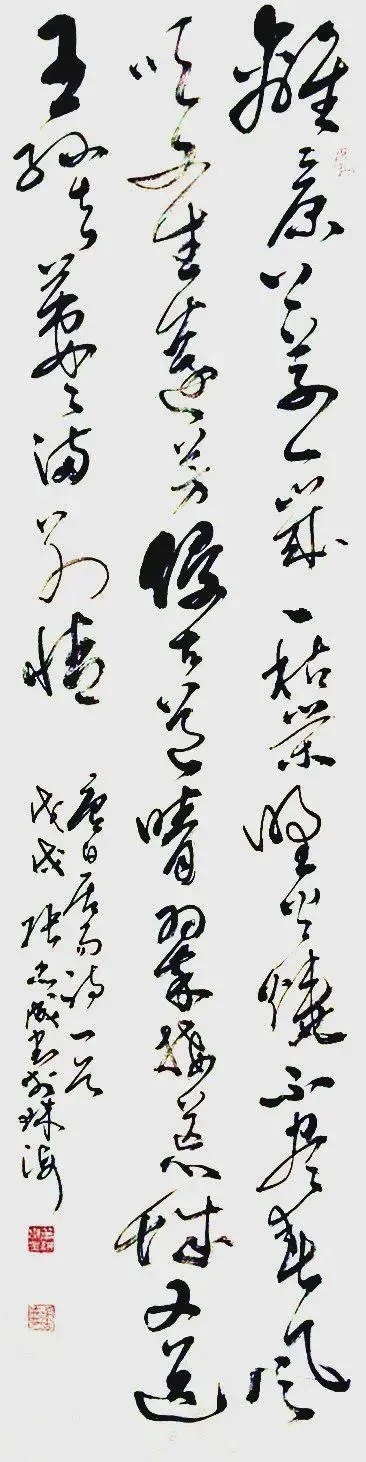 離々原上草一歲一枯榮野火燒不盡春風
吹又生遠芳侵古道晴翠接荒城又送
王孫去萋々滿別情
唐白居易詩一首
戊戌張書於珠海